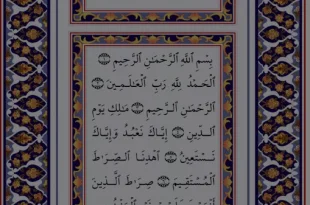 بِسْمِ ٱللَّهِ ٱلرَّحْمَٰنِ ٱلرَّحِيمِ
ٱلْحَمْدُ لِلَّهِ رَبِّ ٱلْعَٰلَمِينَ
ٱلرَّحْمَٰنِ ٱلرَّحِيمِ مَٰلِكِ يَوْمِ
ٱلدِّينِ إِيَّاكَ نَعْبُدُ وَإِيَّاكَ
نَسْتَعِينُ ٱهْدِنَا ٱلصِّرَٰطَ
ٱلْمُسْتَقِيمَ صِرَٰطَ ٱلَّذِينَ